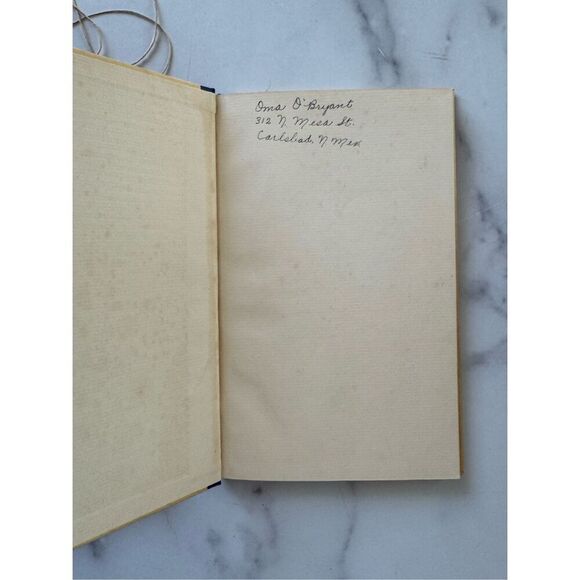 Oma O'Bryant
312 N. Mesa St.
Carlsbad, N Mex